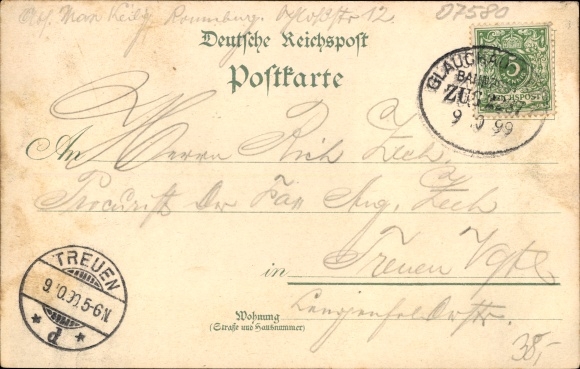 Abs. Max Keilig Ronneburg. Schloßstr 12.
07580
Deutsche Reichspost
Postkarte
GLAUCHAU
BAHNP.
ZUG
9 10 99
REICHSPOST
5
An Herrn Rich Zech.
Procurist der Fa Aug. Zech
in Treuen Vgtl
TREUEN
9.10.99.5-6N
* P *
Wohnung
(Straße und Hausnummer)
Lengenfelderstr.
38,-